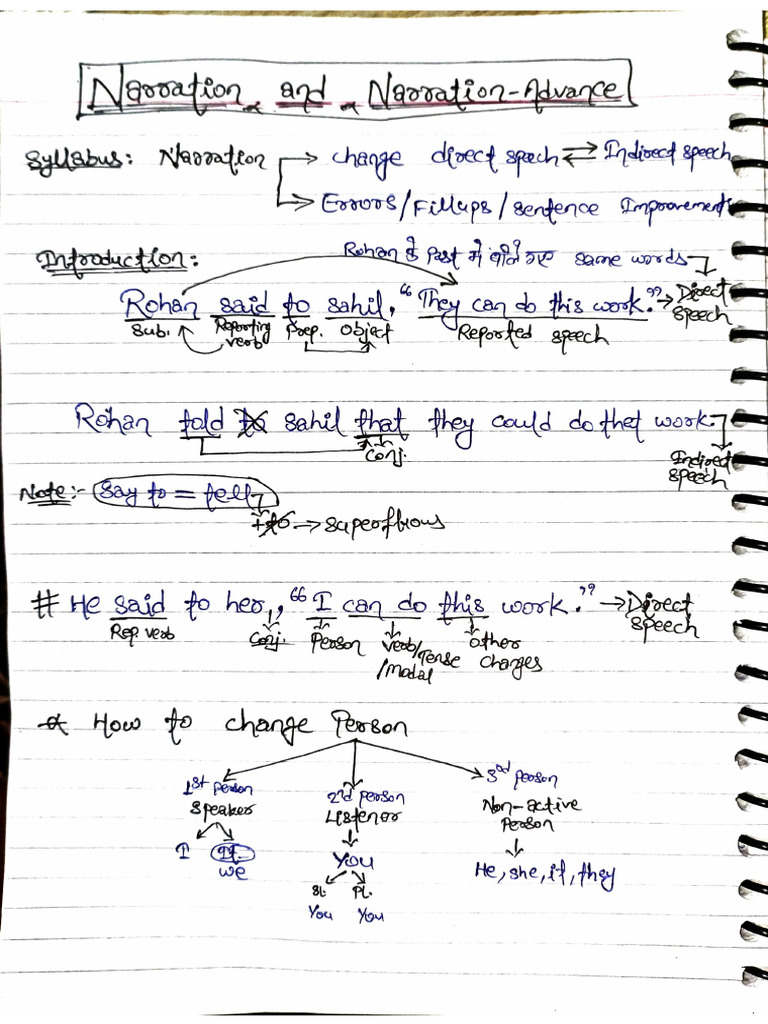 Narration and Narration-Advance
Syllabus: Narration → change direct speech ⇌ Indirect speech
→ Errors/Fillups/sentence Improvements
Introduction:
Rohan के Past में बोले गए same words
Rohan said to sahil, "They can do this work." → Direct speech
Sub. Reporting verb Prep. Object Reported speech
Rohan told to sahil that they could do that work.
Conj.
Indirect speech
Note:- say to = tell
+to → superfluous
# He said to her, "I can do this work." → Direct speech
Rep. verb Conj. Person verb/Tense/Modal other changes
How to change Person
1st person 2nd person 3rd person
Speaker Listener Non-active Person
I we You He, she, it, they
Si. Pl.
You You